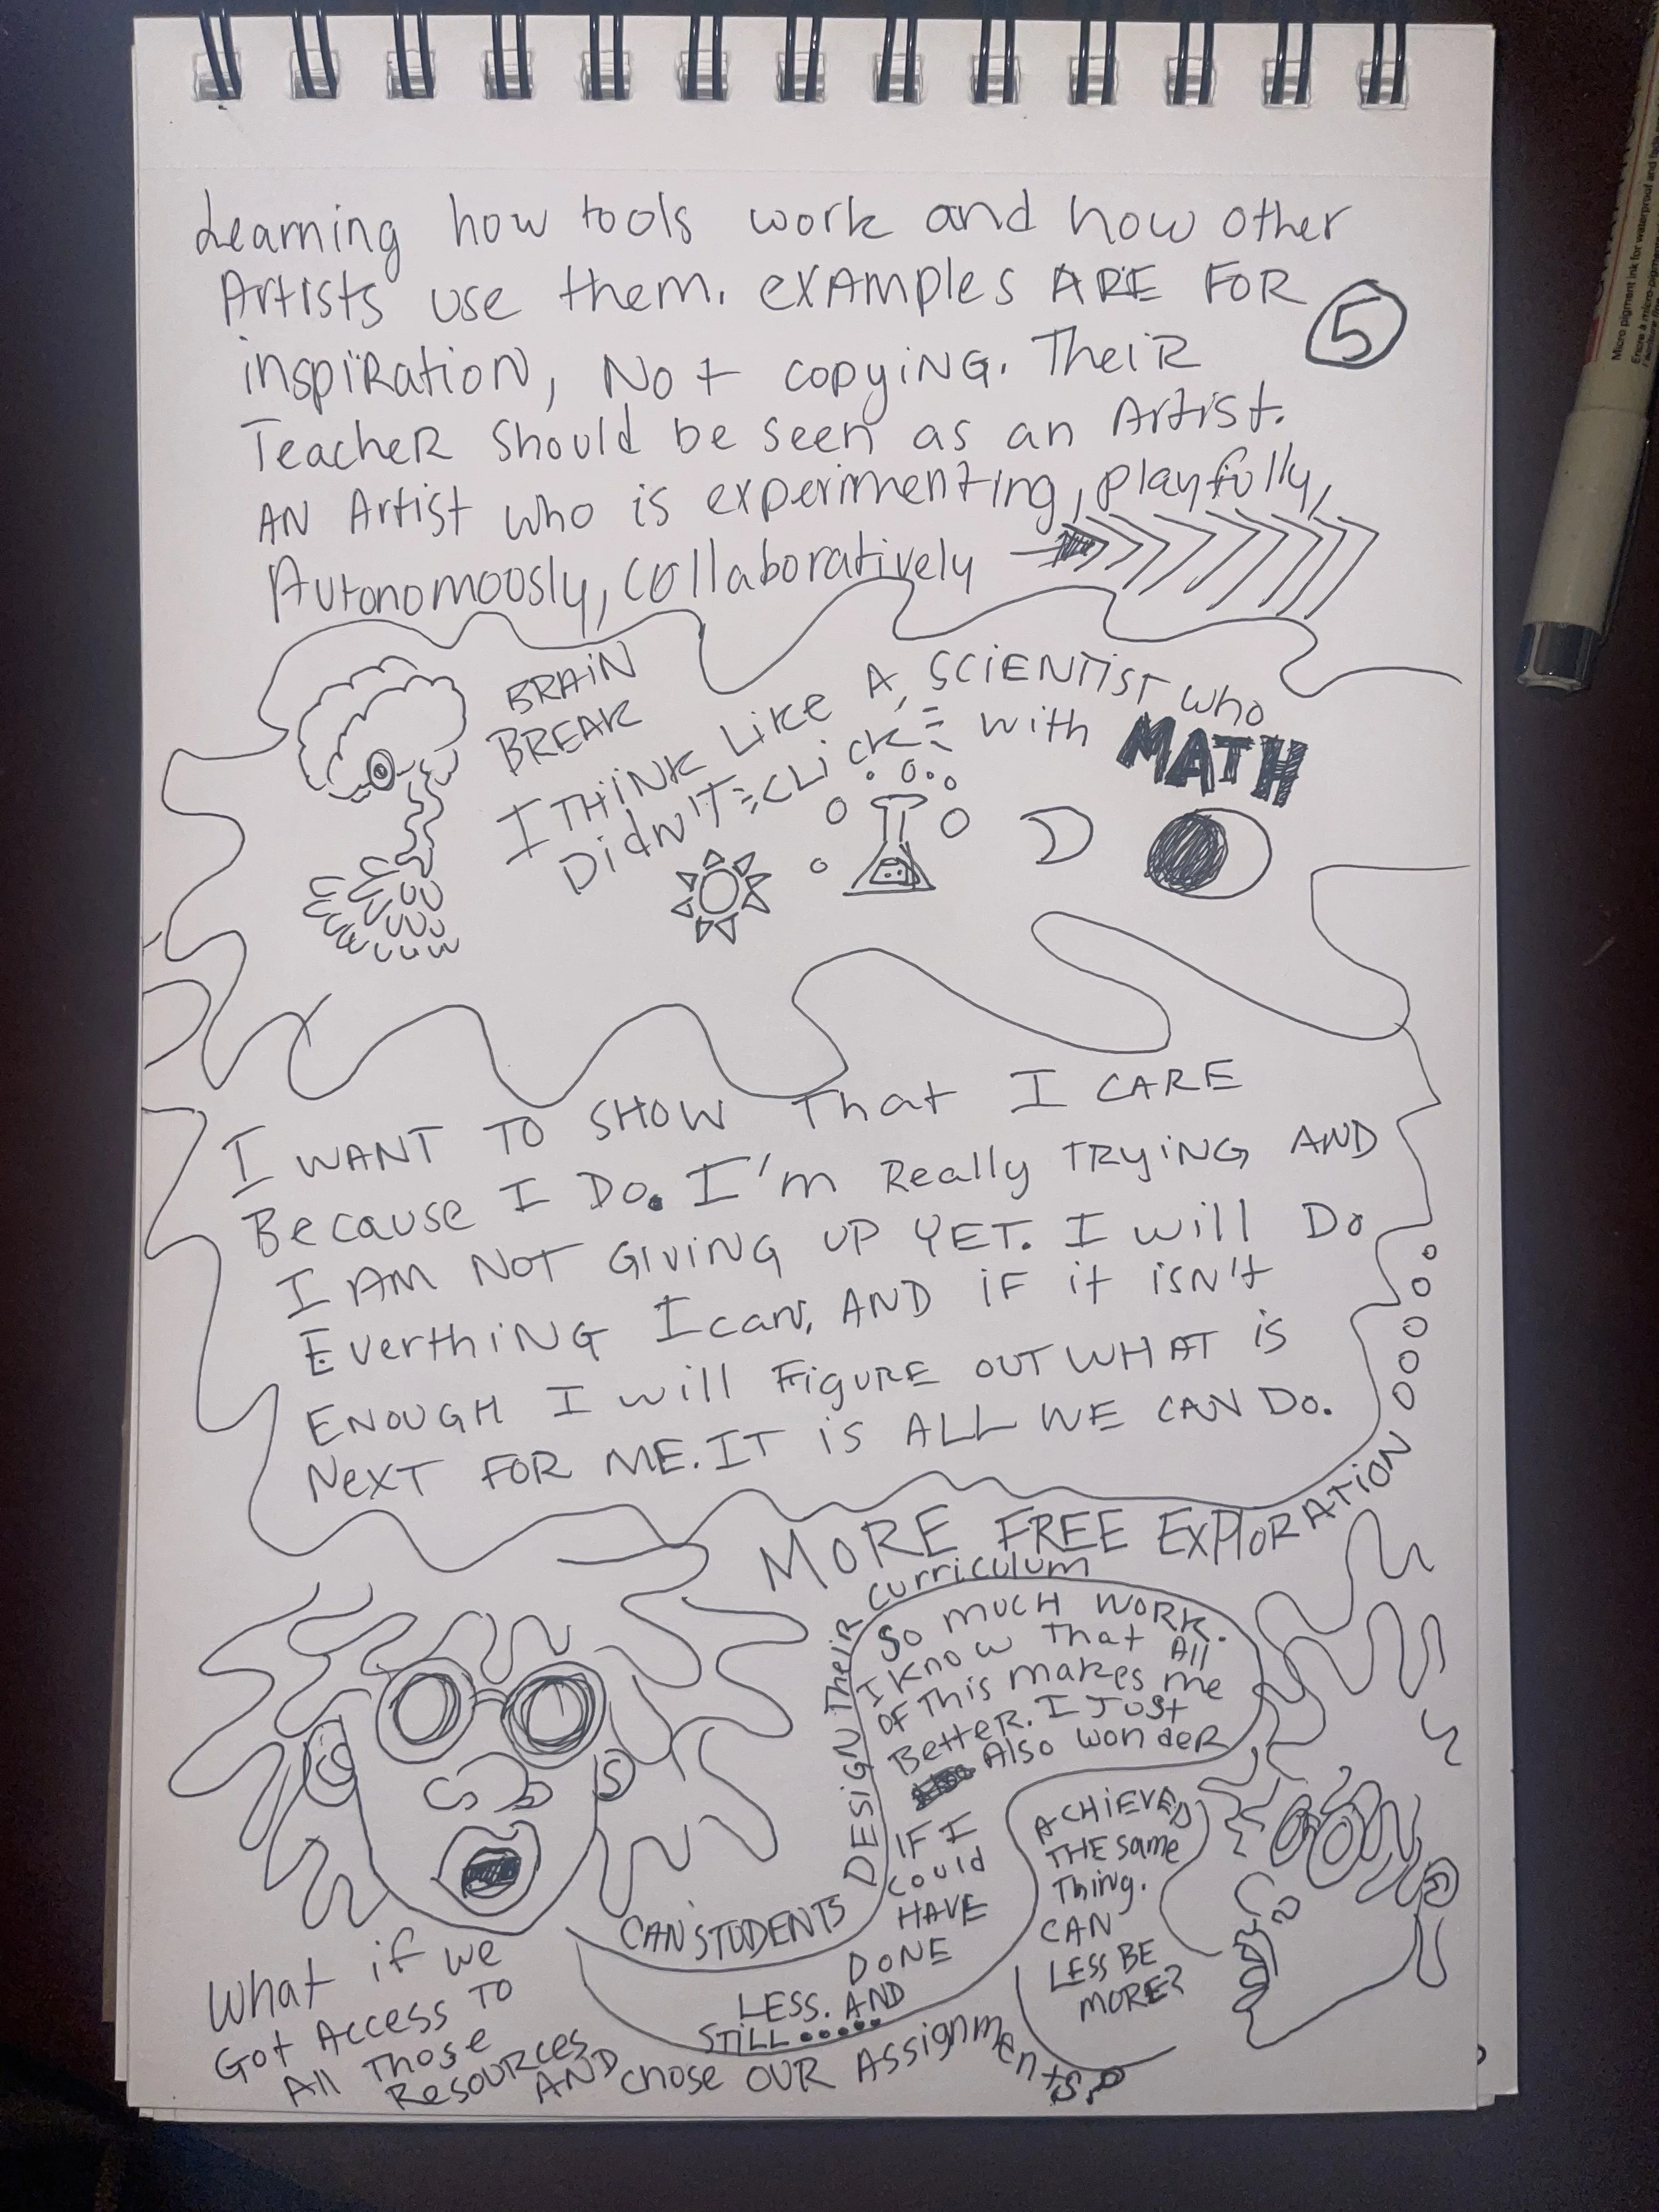 Learning how tools work and how other
Artists use them. examples ARE FOR
inspiration, Not copying. Their
Teacher should be seen as an Artist.
AN Artist who is experimenting, playfully,
Autonomoosly, collaboratively
5
BRAIN
BREAK
I THINK LIKE A SCIENTIST who
DidN'T CLICK with MATH
I WANT TO SHOW That I CARE
Because I Do. I'm Really TRYING AND
I AM NOT GIVING UP YET. I will Do
EverthiNG I can, AND iF it isN't
ENOUGH I will FIGURE OUT WHAT is
NEXT FOR ME. IT is ALL WE CAN Do.
MORE FREE EXPloRATION
CAN STUDENTS DESIGN TheiR curriculum
So mucH WORK.
I know that All
OF This makes me
BetteR. I Just
Also wonder
IF I
could
HAVE
DONE
LESS. AND
STILL.....
ACHiEVED
THE same
Thing.
CAN
LESS BE
MORE?
What if we
Got Access To
All Those
Resources
AND chose OUR Assignments?
Micro pigment ink for waterproof and